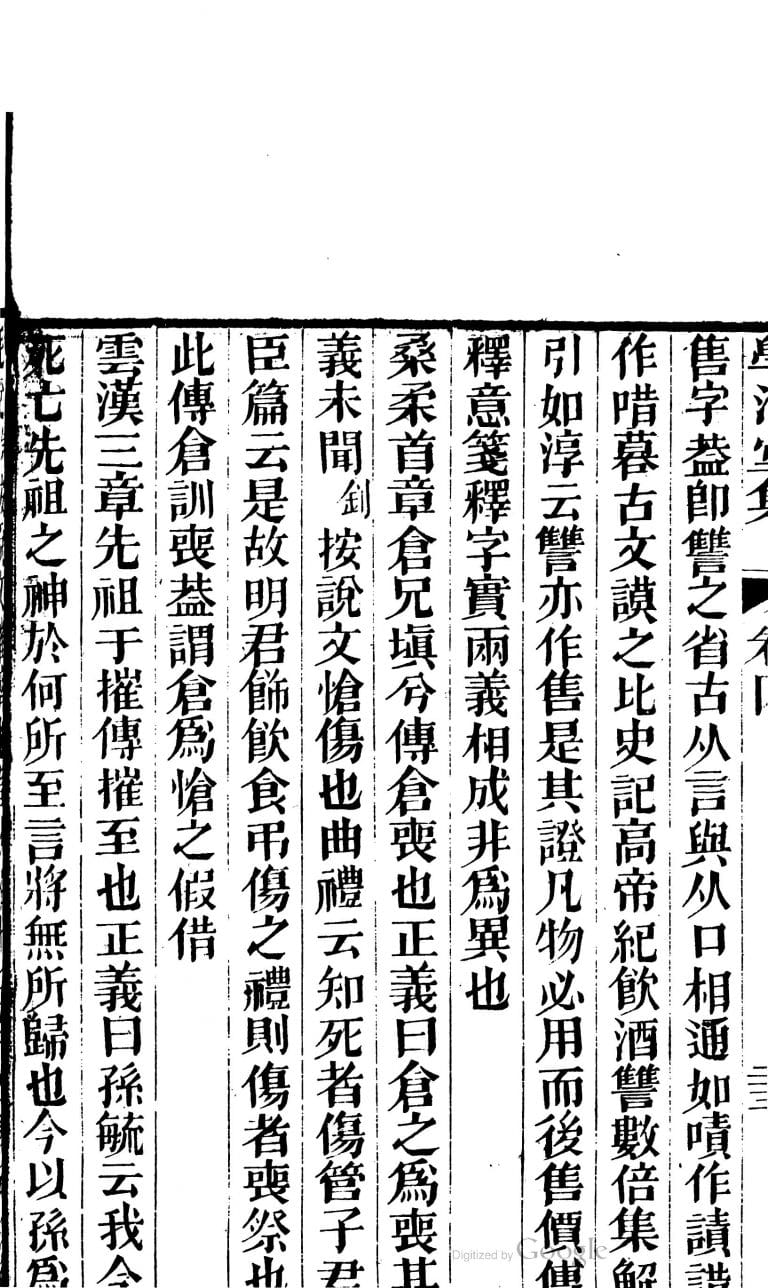 學海堂集 卷四 二三
售字葢卽讐之省古从言與从口相通如嘖作讀譜
作唶暮古文謨之比史記高帝紀飮酒讐數倍集解
引如淳云讐亦作售是其證凡物必用而後售價傳
釋意箋釋字實兩義相成非爲異也
桑柔首章倉兄塡兮傳倉喪也正義曰倉之爲喪其
義未聞釗按說文愴傷也曲禮云知死者傷管子君
臣篇云是故明君飾飮食弔傷之禮則傷者喪祭也
此傳倉訓喪葢謂倉爲愴之假借
雲漢三章先祖于摧傳摧至也正義曰孫毓云我今
死亡先祖之神於何所至言將無所歸也今以孫爲
Digitized by Google